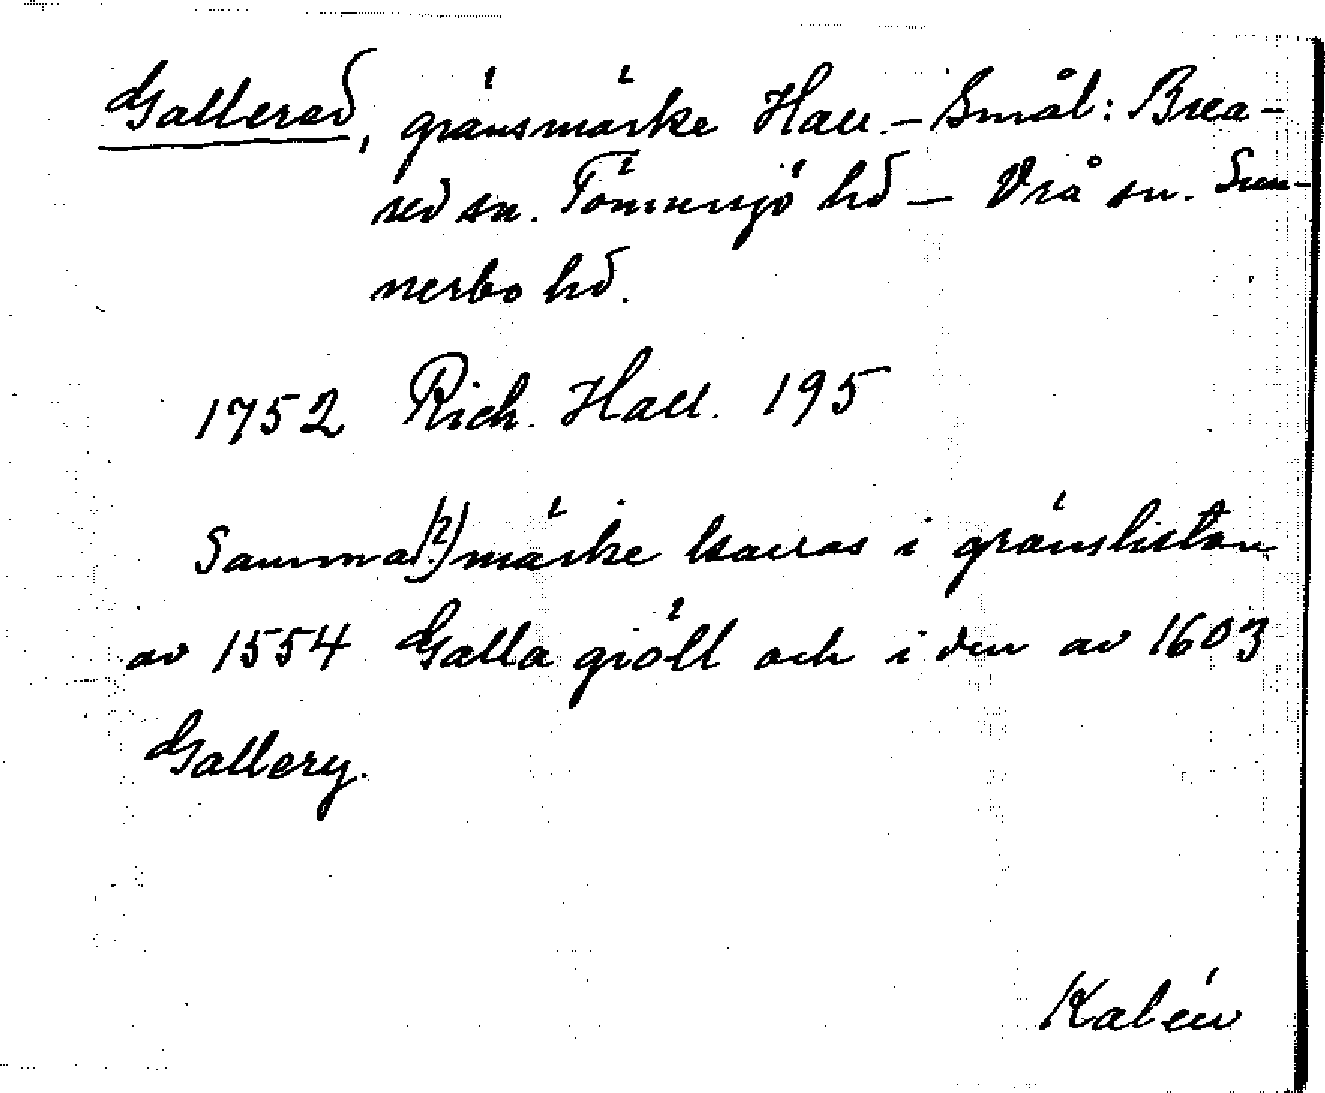 Gallered, gränsmärke Hall.–Smål: Brea-
red sn. Tönnersjö hd – Vrå sn. Sun-
nerbo hd.
1752 Rich. Hall. 195
Samma(?) märke kallas i gränslistan
av 1554 Galla giöll och i den av 1603
Gallery.
Kalén